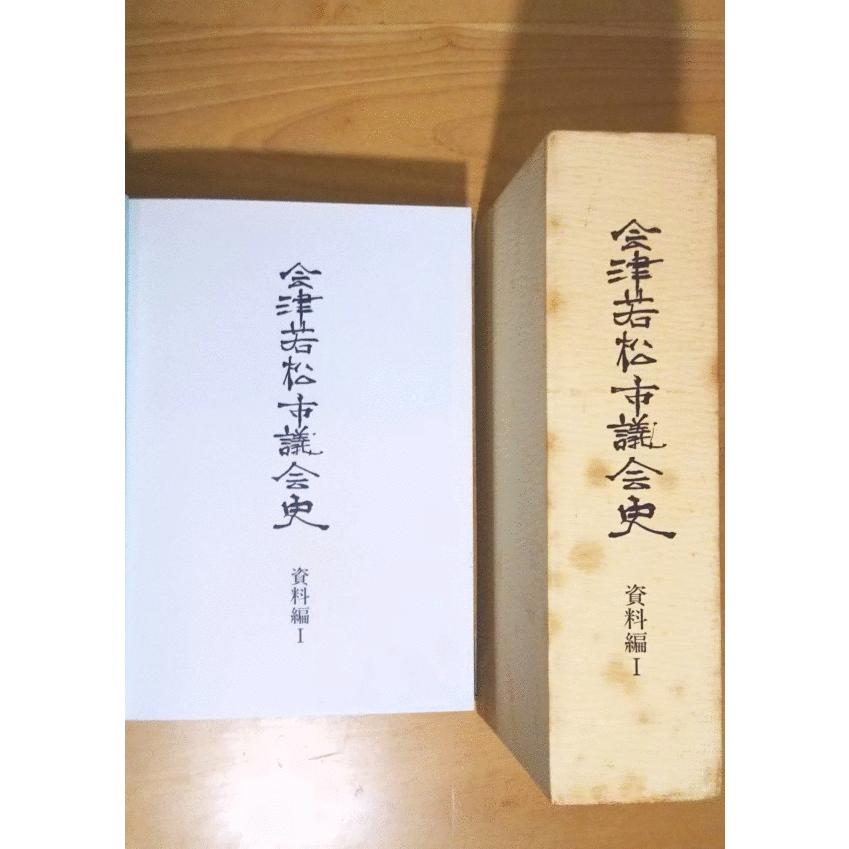 会津若松市議会史
資料編Ⅰ
会津若松市議会史
資料編Ⅰ